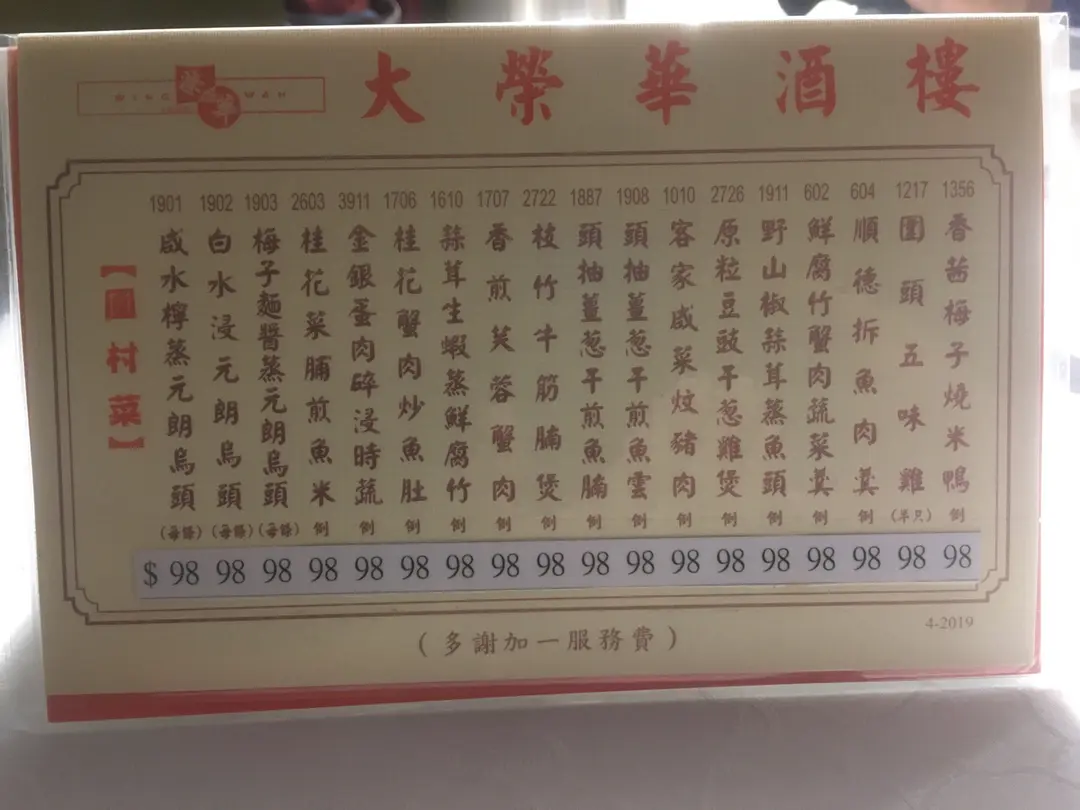 榮華
WING WAH
大榮華酒樓
【圍村菜】
1901 1902 1903 2603 3911 1706 1610 1707 2722 1887 1908 1010 2726 1911 602 604 1217 1356
咸水檸蒸元朗烏頭(每條)
白水浸元朗烏頭(每條)
梅子麵醬蒸元朗烏頭(每條)
桂花菜脯煎魚米 例
金銀蛋肉碎浸時蔬 例
桂花蟹肉炒魚肚 例
蒜茸生蝦蒸鮮腐竹 例
香煎芙蓉蟹肉 例
枝竹牛筋腩煲 例
頭抽薑葱干煎魚腩 例
頭抽薑葱干煎魚雲 例
客家咸菜炆豬肉 例
原粒豆豉干葱雞煲 例
野山椒蒜茸蒸魚頭 例
鮮腐竹蟹肉蔬菜羹 例
順德拆魚肉羹 例
圍頭五味雞(半只)
香茜梅子燒米鴨 例
$ 98 98 98 98 98 98 98 98 98 98 98 98 98 98 98 98 98 98
4-2019
(多謝加一服務費)